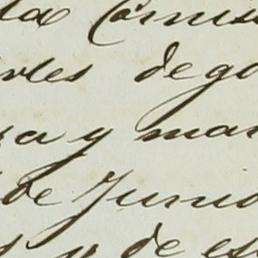 la Comis
des dego
za y man
de Junio
y de es